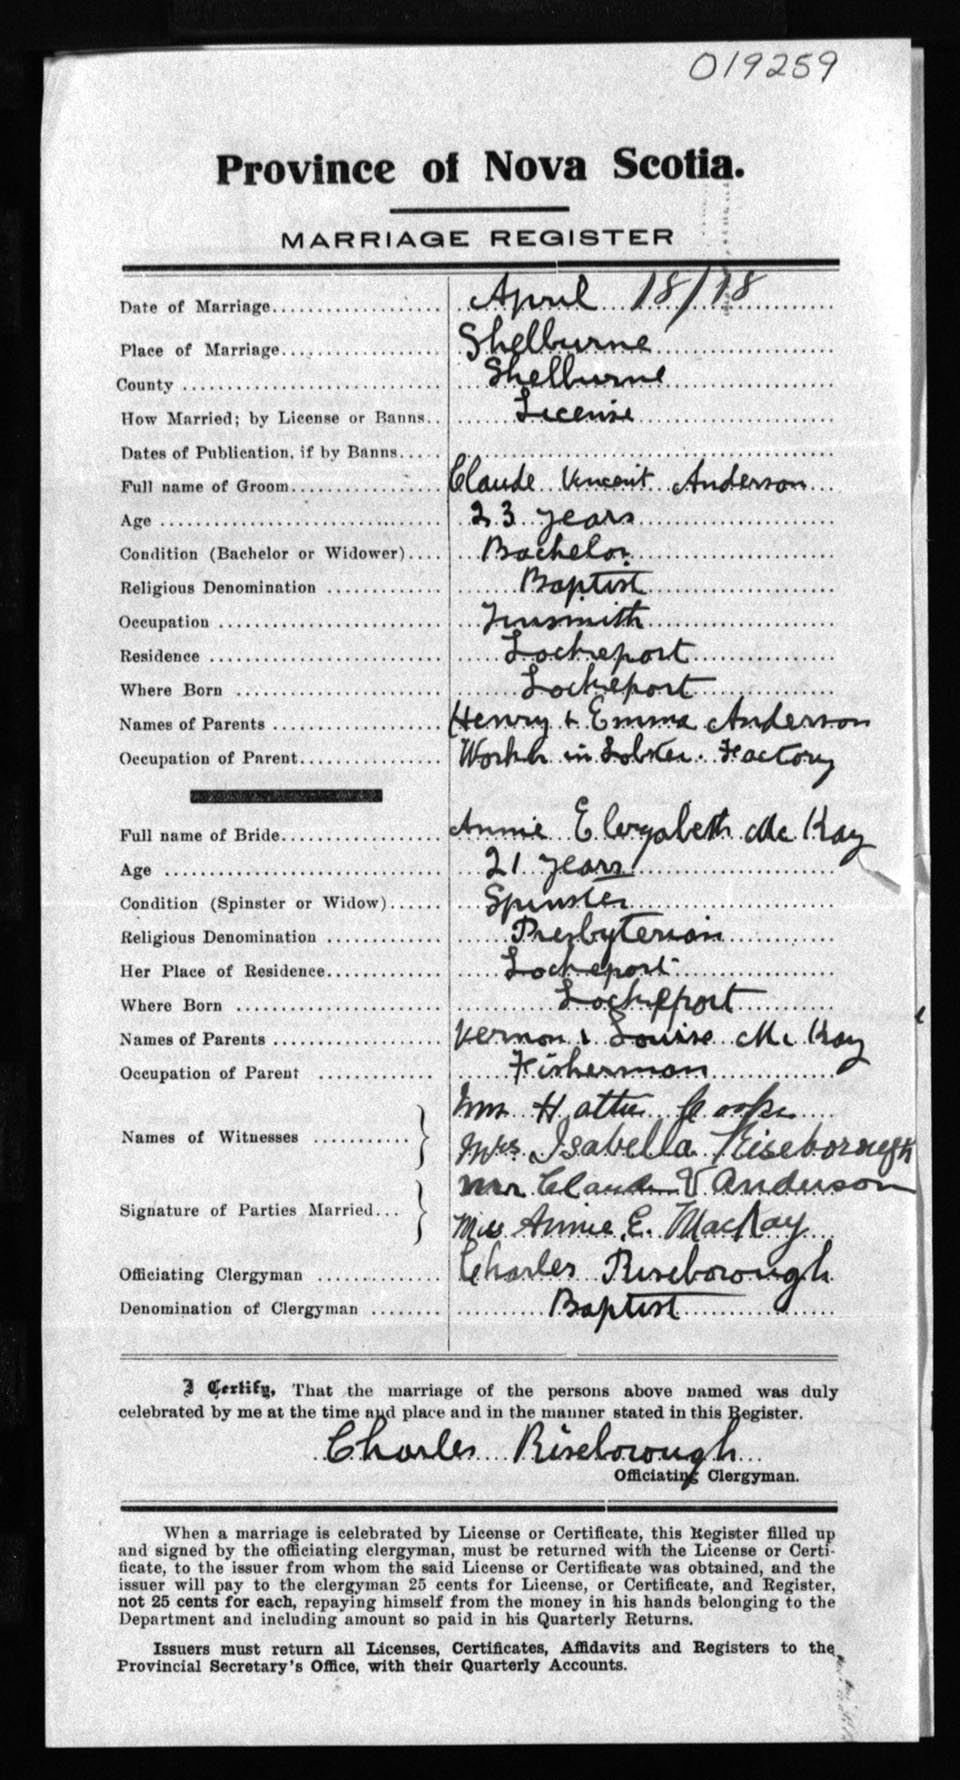 019259
Province of Nova Scotia.
MARRIAGE REGISTER
Date of Marriage.................... April 18/18
Place of Marriage.................. Shelburne
County ............................ Shelburne
How Married; by License or Banns.. License
Dates of Publication, if by Banns.....
Full name of Groom................ Claude Vincent Anderson
Age .............................. 23 years
Condition (Bachelor or Widower).... Bachelor
Religious Denomination ............. Baptist
Occupation ........................ Tinsmith
Residence ......................... Lockeport
Where Born ....................... Lockeport
Names of Parents .................. Henry & Emma Anderson
Occupation of Parent............... Work in Lobster Factory
Full name of Bride.................. Annie Elizabeth Mc Kay
Age .............................. 21 years
Condition (Spinster or Widow)...... Spinster
Religious Denomination ............. Presbyterian
Her Place of Residence............. Lockeport
Where Born ....................... Lockeport
Names of Parents .................. Vernon & Louise Mc Kay
Occupation of Parent ............. Fisherman
Names of Witnesses ........... } Hattie
Mrs. Isabella Riseborough
Signature of Parties Married... } Mr Claude V Anderson
Miss Annie E. MacKay
Officiating Clergyman .............. Charles Riseborough
Denomination of Clergyman ........ Baptist
I Certify, That the marriage of the persons above named was duly
celebrated by me at the time and place and in the manner stated in this Register.
Charles Riseborough
Officiating Clergyman.
When a marriage is celebrated by License or Certificate, this Register filled up
and signed by the officiating clergyman, must be returned with the License or Certi-
ficate, to the issuer from whom the said License or Certificate was obtained, and the
issuer will pay to the clergyman 25 cents for License, or Certificate, and Register,
not 25 cents for each, repaying himself from the money in his hands belonging to the
Department and including amount so paid in his Quarterly Returns.
Issuers must return all Licenses, Certificates, Affidavits and Registers to the
Provincial Secretary's Office, with their Quarterly Accounts.